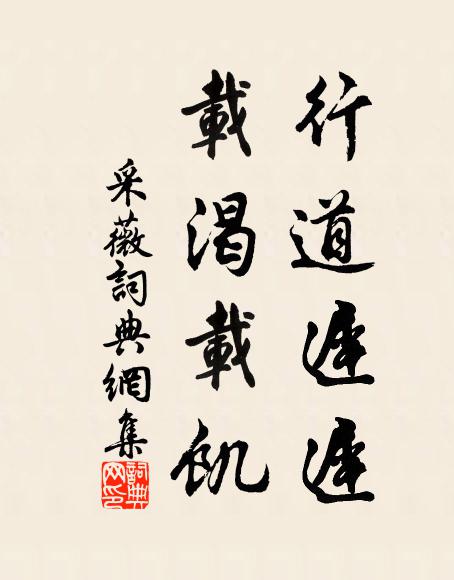 行道遲遲
載渴載飢
采薇詞典網集
詞典
网印